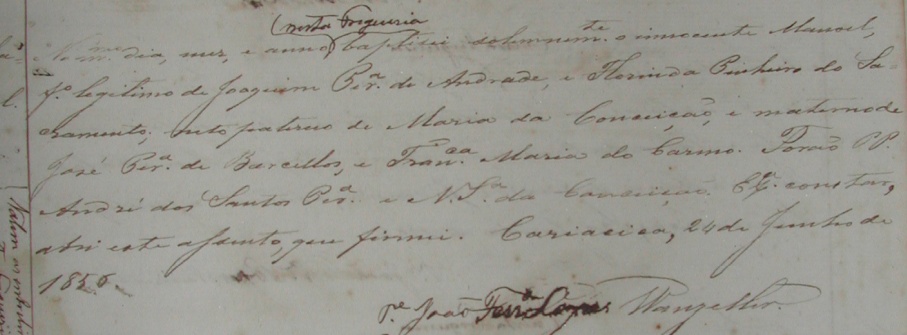 (nesta Freguesia
No m.mo dia, mez, e anno) baptizei solemnem.te o innocente Manoel,
f.o legitimo de Joaquim Per.a de Andrade, e Florinda Pinheiro do Sa-
cramento; neto paterno de Maria da Conceição, e materno de
José Per.a de Barcellos, e Fran.ca Maria do Carmo. Forão PP.
André dos Santos Per.a e N. S.a da Conceição. E p.a constar,
abri este assento, que firmei. Cariacica, 24 de Junho de
1856.
P.e João Wanzeller